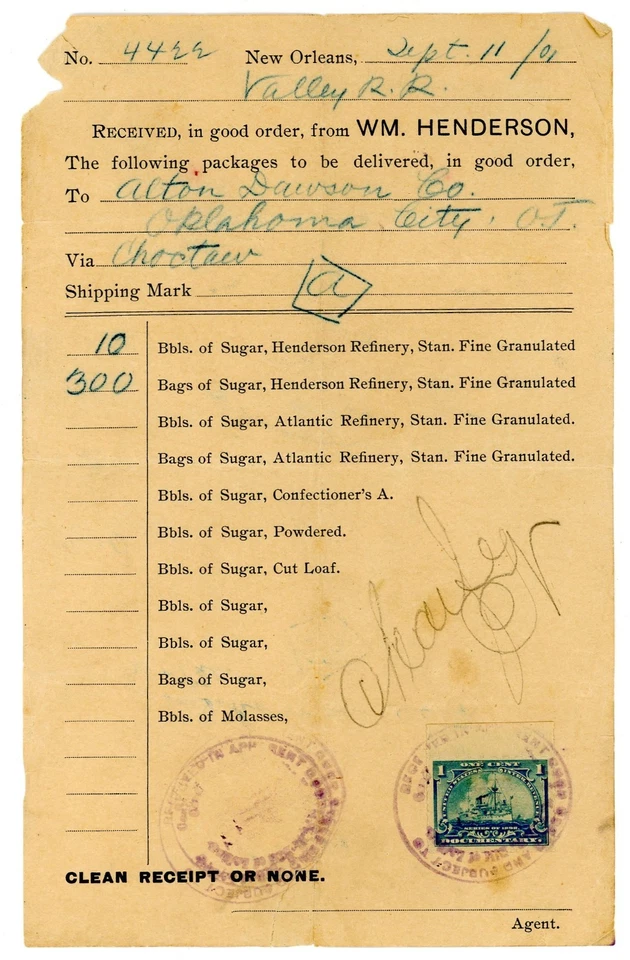 No. 4422 New Orleans, Sept. 11/01
Valley R. R.
RECEIVED, in good order, from WM. HENDERSON,
The following packages to be delivered, in good order,
To Alton Dawson Co.
Oklahoma City. O.T.
Via Choctaw
Shipping Mark A
10 Bbls. of Sugar, Henderson Refinery, Stan. Fine Granulated
300 Bags of Sugar, Henderson Refinery, Stan. Fine Granulated
Bbls. of Sugar, Atlantic Refinery, Stan. Fine Granulated.
Bags of Sugar, Atlantic Refinery, Stan. Fine Granulated.
Bbls. of Sugar, Confectioner's A.
Bbls. of Sugar, Powdered.
Bbls. of Sugar, Cut Loaf.
Bbls. of Sugar,
Bbls. of Sugar,
Bags of Sugar,
Bbls. of Molasses,
RECEIVED IN APPARENT GOOD ORDER
SUBJECT TO
RECEIVED IN APPARENT GOOD ORDER
AND SUBJECT TO
1 ONE CENT 1
UNITED STATES INTER. REVENUE
SERIES OF 1898
DOCUMENTARY
CLEAN RECEIPT OR NONE.
Agent.